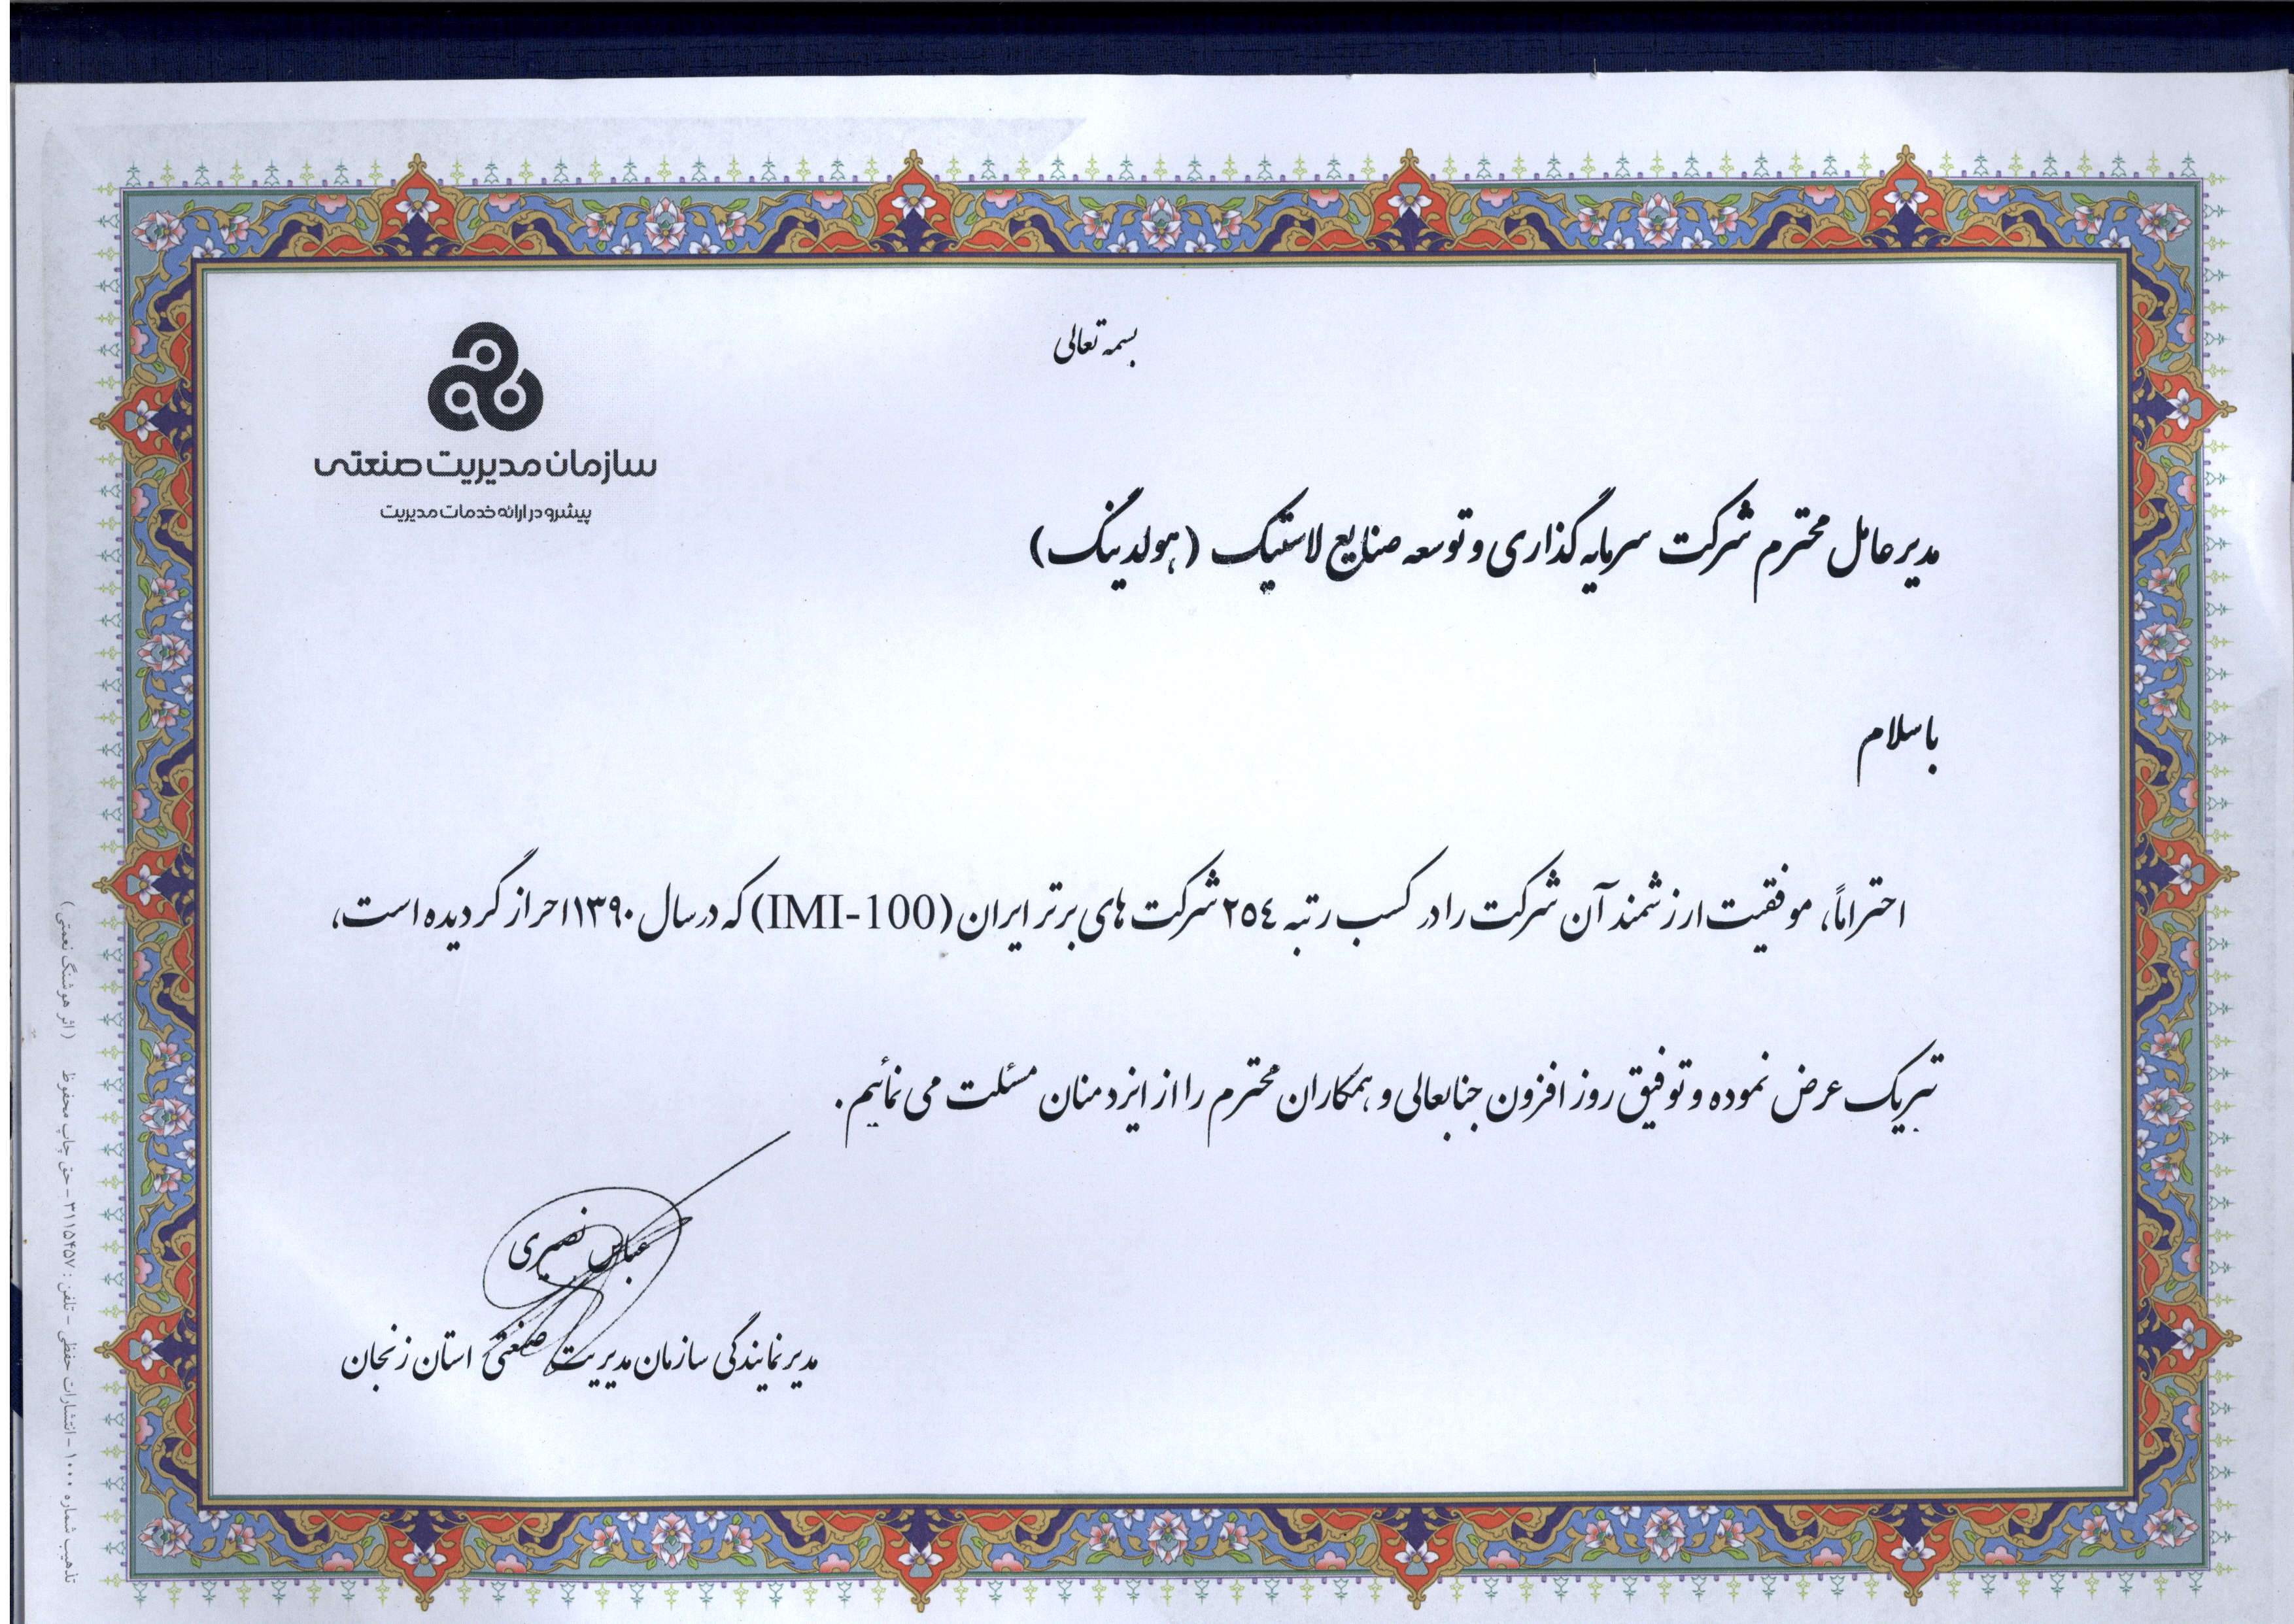 بسمه تعالی
سازمان مدیریت صنعتی
پیشرو در ارائه خدمات مدیریت
مدیرعامل محترم شرکت سرمایه گذاری و توسعه صنایع لاستیک (هولدینگ)
باسلام
احتراماً، موفقیت ارزشمند آن شرکت را در کسب رتبه ٢٥٤ شرکت های برتر ایران (IMI-100) که در سال ۱۳۹۰ احراز گردیده است،
تبریک عرض نموده و توفیق روز افزون جنابعالی و همکاران محترم را از ایزد منان مسئلت می نمائیم.
عباس نصیری
مدیر نمایندگی سازمان مدیریت صنعتی استان زنجان
تذهیب شماره ۱۰۰۰ – انتشارات حفظی – تلفن : ۳۱۱۵۴۵۷ – حق چاپ محفوظ ( اثر هوشنگ نعمتی )